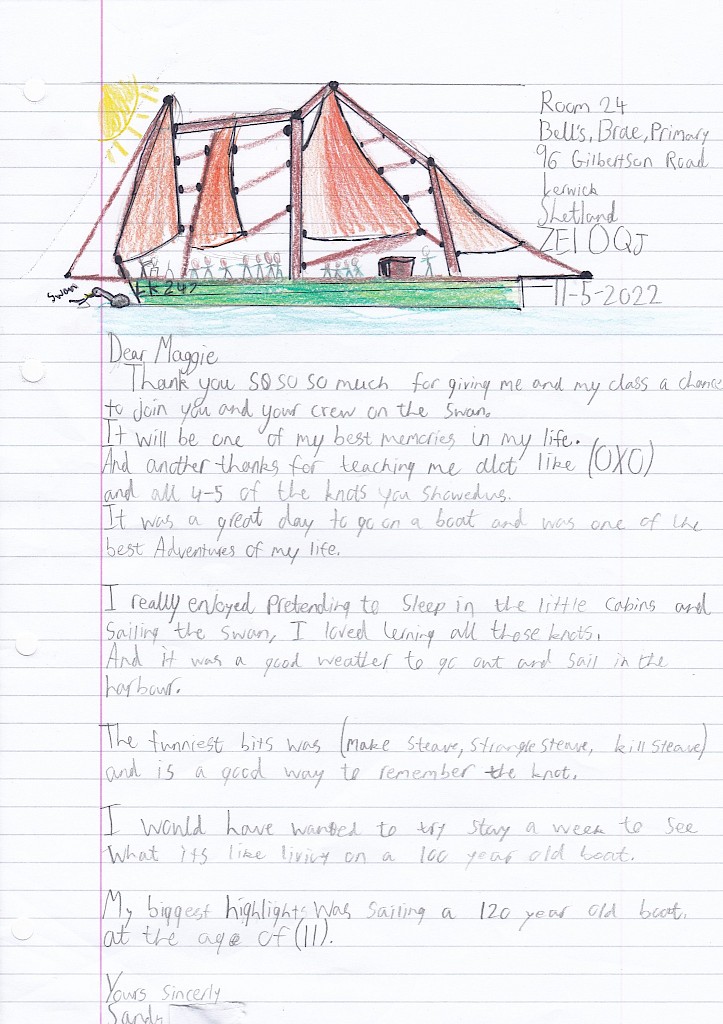 Room 24
Bell's, Brae, Primary
96 Gilbertson Road
Lerwick
Shetland
ZE1 0QJ
11-5-2022
swan
LK 243
Dear Maggie
Thank you so so so much for giving me and my class a chance
to join you and your crew on the swan.
It will be one of my best memories in my life.
And another thanks for teaching me alot like (OXO)
and all 4-5 of the knots you showed us.
It was a great day to go on a boat and was one of the
best Adventures of my life.
I really enjoyed Pretending to sleep in the little cabins and
sailing the swan, I loved lerning all those knots.
And it was a good weather to go out and sail in the
harbour.
The funniest bits was (make steave, strangle steave, kill steave)
and is a good way to remember the knot.
I would have wanted to try stay a week to see
what its like living on a 100 year old boat.
My biggest highlights was sailing a 120 year old boat.
at the age of (11).
Yours sincerly
Sandy